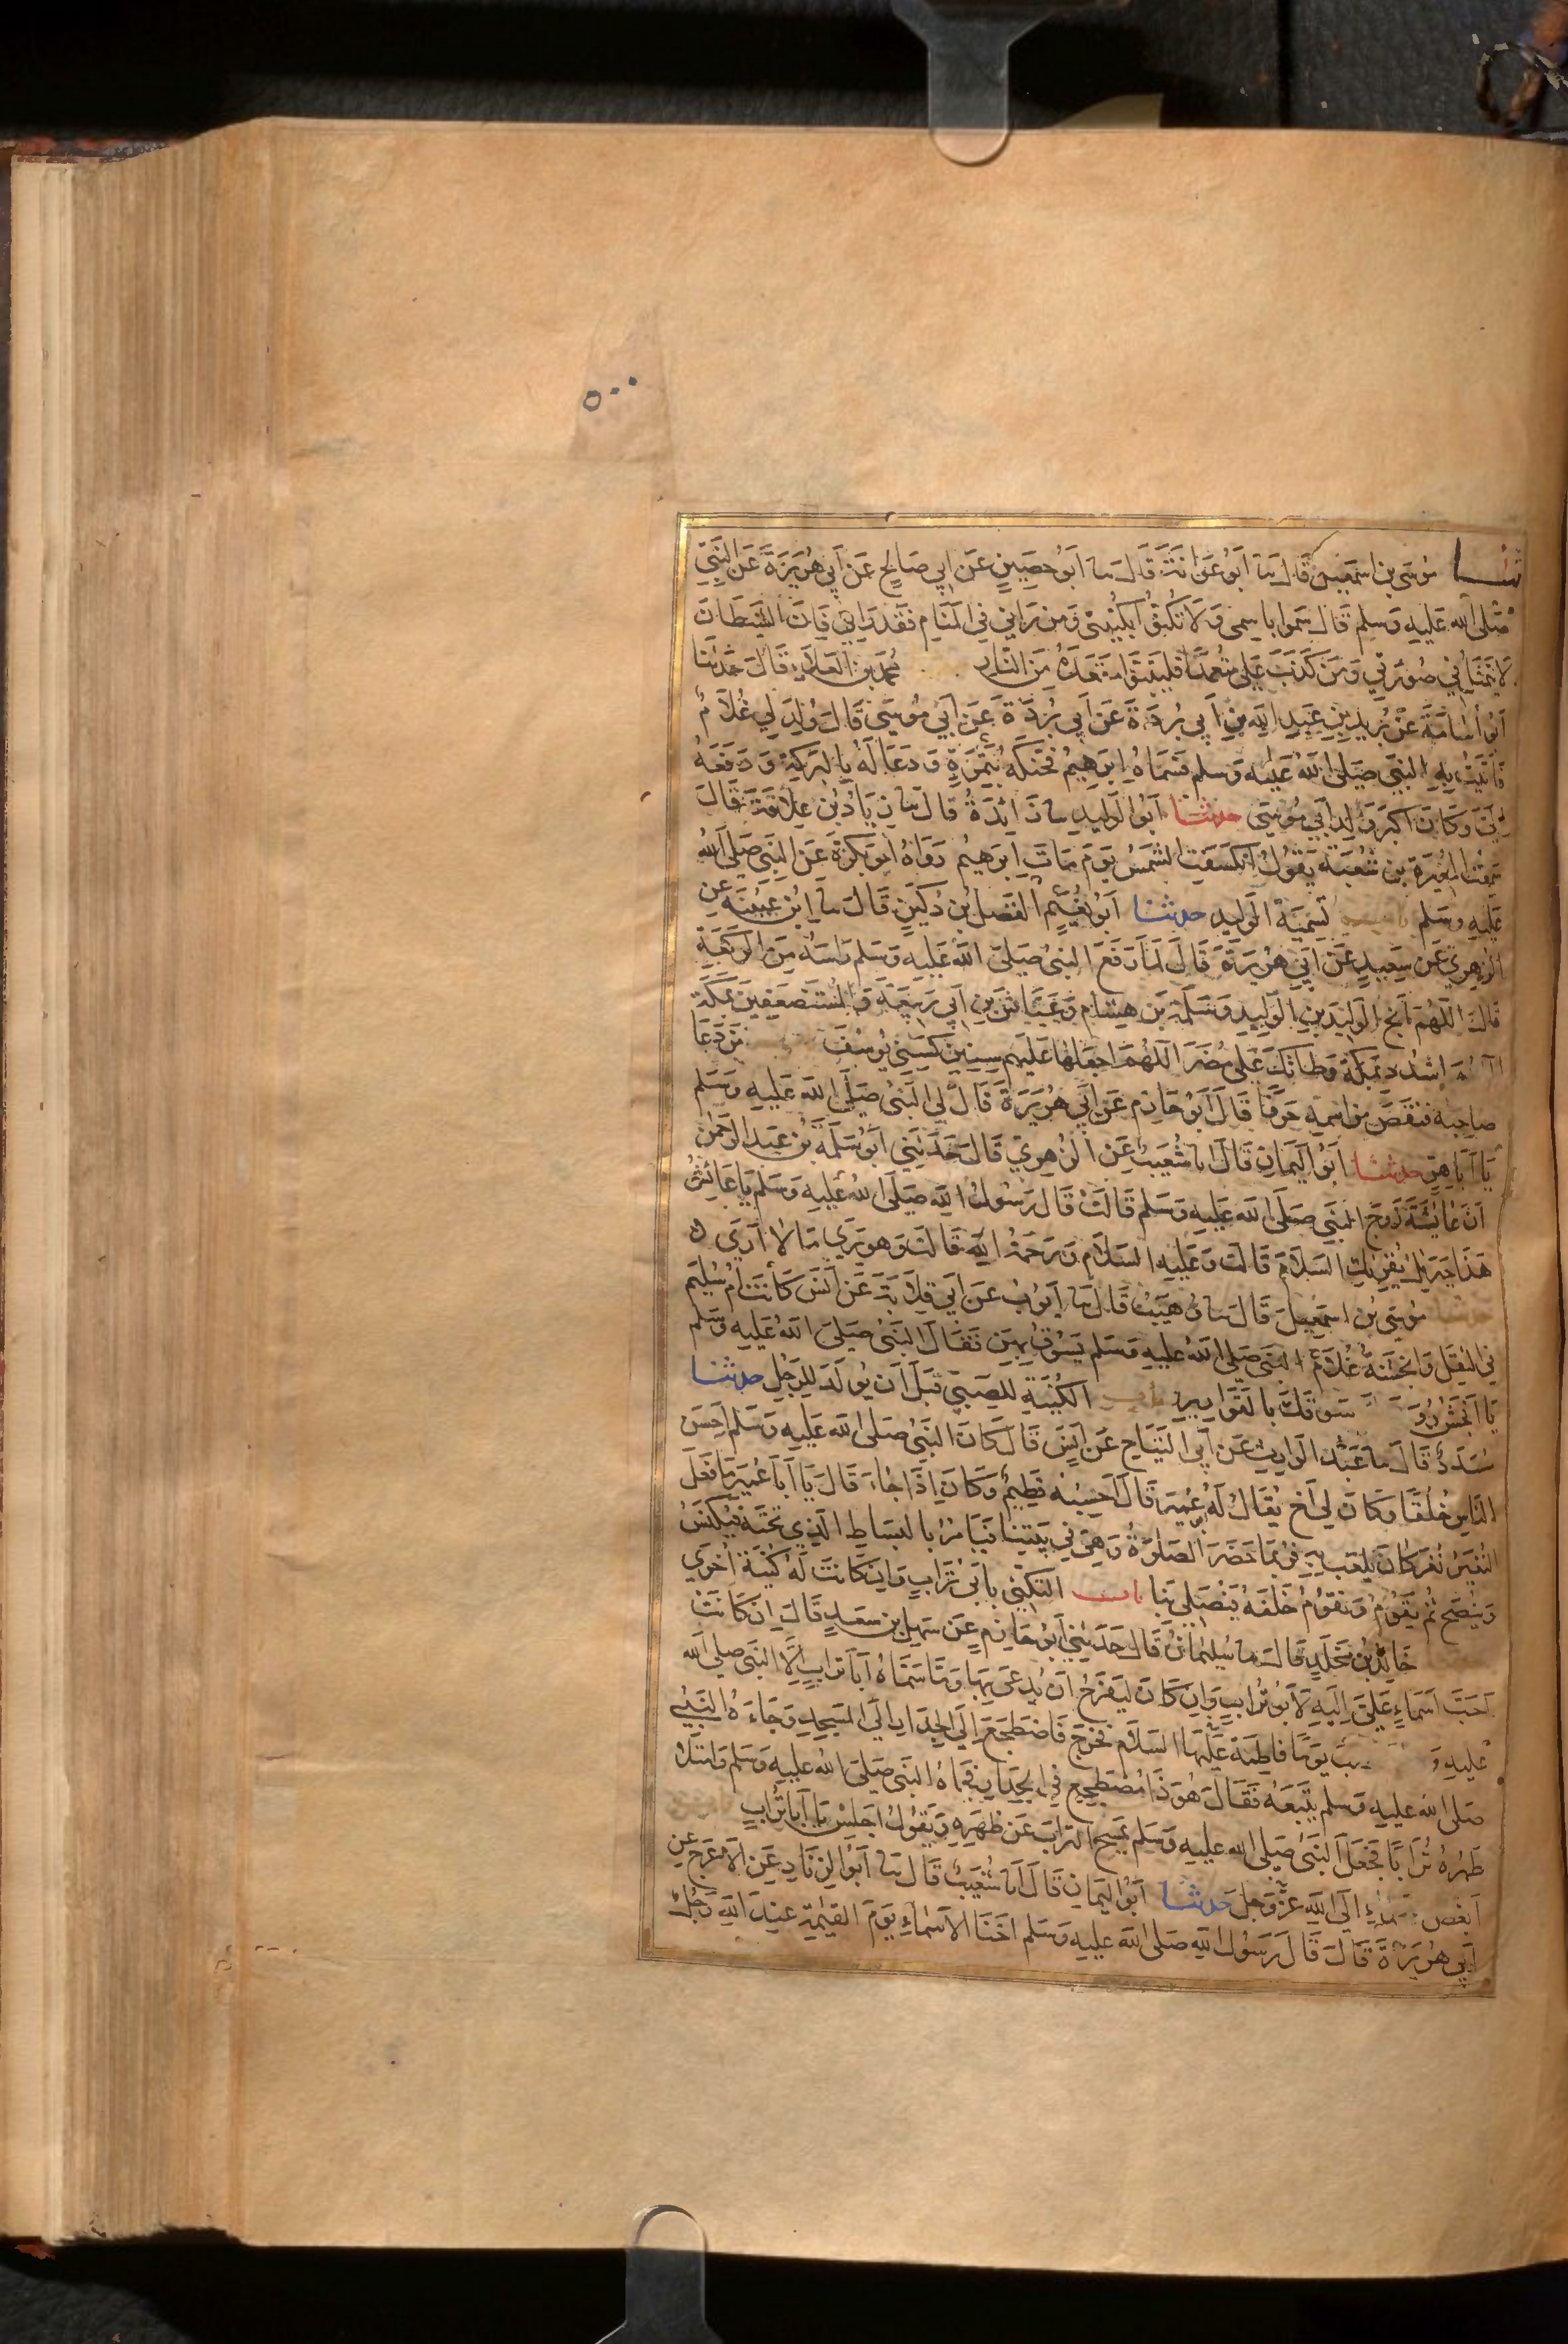 ٥٠٠
ثنا موسى بن اسمعيل قال نا ابو عوانة قال نا ابو حصين عن ابي صالح عن ابي هريرة عن النبي
صلى الله عليه وسلم قال سموا باسمي ولا تكنوا بكنيتي ومن راني في المنام فقد راني فان الشيطان
لا يتمثل في صورتي ومن كذب علي متعمدا فليتبوا مقعده من النار محمد بن العلاء قال حدثنا
ابو أسامة عن بريد بن عبد الله بن ابي بردة عن ابي بردة عن ابي موسى قال ولد لي غلام
فاتيت به النبي صلى الله عليه وسلم فسماه ابرهيم فحنكه بتمرة ودعا له بالبركة ودفعه
الي وكان اكبر ولد ابي موسى حدثنا ابو الوليد نا زائدة قال نا زياد بن علاقة قال
سمعت المغيرة بن شعبة يقول انكسفت الشمس يوم مات ابرهيم رواه ابو بكرة عن النبي صلى الله
عليه وسلم باب تسمية الوليد حدثنا ابو نعيم الفضل بن دكين قال نا ابن عيينة عن
الزهري عن سعيد عن ابي هريرة قال لما رفع النبي صلى الله عليه وسلم راسه من الركعة
قال اللهم انج الوليد بن الوليد وسلمة بن هشام وعياش بن ابي ربيعة والمستضعفين بمكة
اللهم اشدد وطاتك على مضر اللهم اجعلها عليهم سنين كسني يوسف من دعا
صاحبه فنقص من اسمه حرفا قال ابو حازم عن ابي هريرة قال لي النبي صلى الله عليه وسلم
يا ابا هر حدثنا ابو اليمان قال انا شعيب عن الزهري قال حدثني ابو سلمة بن عبد الرحمن
ان عائشة زوج النبي صلى الله عليه وسلم قالت قال رسول الله صلى الله عليه وسلم يا عائش
هذا جبريل يقرئك السلام قالت وعليه السلام ورحمة الله قالت وهو يرى ما لا أرى
حدثنا موسى بن اسمعيل قال نا وهيب قال نا ايوب عن ابي قلابة عن انس كانت ام سليم
في الثقل وانجشة غلام النبي صلى الله عليه وسلم يسوق بهن فقال النبي صلى الله عليه وسلم
يا انجش رو سوقك بالقوارير باب الكنية للصبي قبل ان يولد للرجل حدثنا
مسدد قال نا عبد الوارث عن ابي التياح عن انس قال كان النبي صلى الله عليه وسلم احسن
الناس خلقا وكان لي اخ يقال له ابو عمير قال احسبه فطيم وكان اذا جاء قال يا ابا عمير ما فعل
النغير نغر كان يلعب به فربما حضر الصلوة وهي في بيتنا فيامر بالبساط الذي تحته فيكنس
وينضح ثم يقوم ونقوم خلفه فيصلي بنا باب التكني بابي تراب وان كانت له كنية أخرى
خالد بن مخلد قال نا سليمان قال حدثني ابو حازم عن سهل بن سعد قال ان كانت
احب اسماء علي اليه لابو تراب وان كان ليفرح ان يدعى بها وما سماه ابا تراب الا النبي صلى الله
عليه و ب يوما فاطمة عليها السلام فخرج فاضطجع الى الجدار الى المسجد وجاءه النبي
صلى الله عليه وسلم يتبعه فقال هو ذا مضطجع في الجدار فجاه النبي صلى الله عليه وسلم وامتلا
ظهره ترابا فجعل النبي صلى الله عليه وسلم يمسح التراب عن ظهره ويقول اجلس يا ابا تراب
ابغض سماء الى الله عز وجل حدثنا ابو اليمان قال انا شعيب قال نا ابو الزناد عن الاعرج عن
ابي هريرة قال قال رسول الله صلى الله عليه وسلم اخنا الاسماء يوم القيمة عند الله رجل